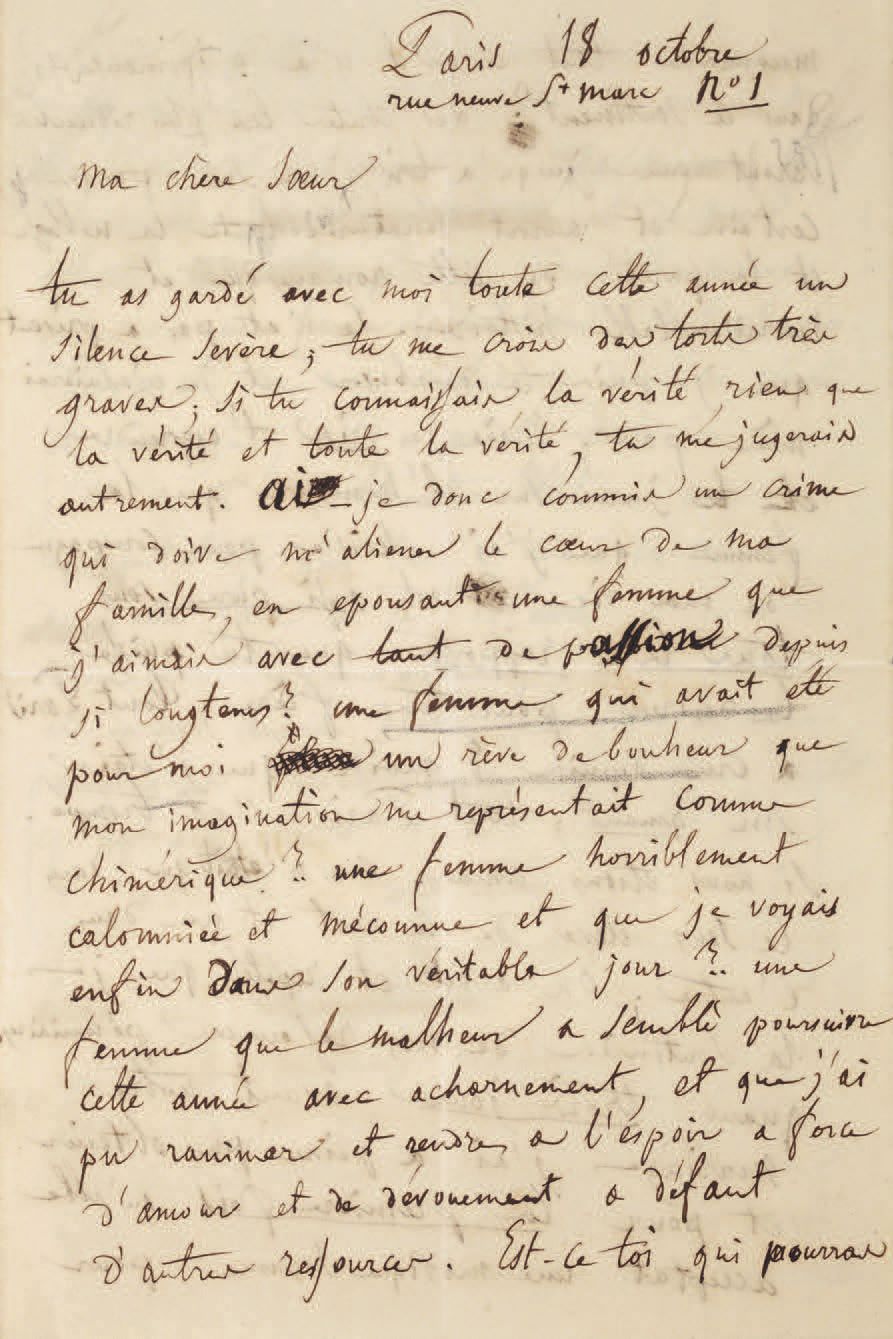 Paris 18 octobre
rue neuve St marc No 1
ma chere sœur
tu as gardé avec moi toute cette année un
silence sevère ; tu me crois des torts très
graves ; si tu connaissais la vérité rien que
la vérité et toute la vérité, tu me jugerais
autrement. ai-je donc commis un crime
qui doive m'aliener le cœur de ma
famille, en epousant une femme que
j'aimais avec tant de passion depuis
si longtems ? une femme qui avait eté
pour moi un rève de bonheur que
mon imagination me représentait comme
chimérique ?.. une femme horriblement
calomniée et méconnue et que je voyais
enfin dans son véritable jour ?.. une
femme que le malheur a semblé poursuivre
cette année avec acharnement, et que j'ai
pu ranimer et rendre a l'éspoir a force
d'amour et de dévouement a défaut
d'autres ressources. Est-ce toi qui pourras